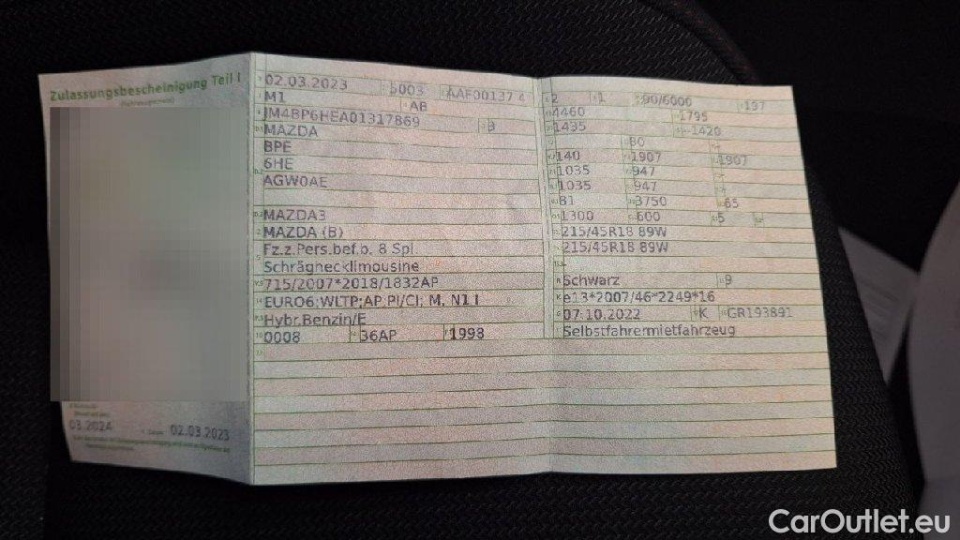 Zulassungsbescheinigung Teil I
03.2024 02.03.2023
02.03.2023 5003 AAF00137 4
M1 AB
JM4BP6HEA01317869 3
MAZDA
BPE
6HE
AGW0AE
MAZDA3
MAZDA (B)
Fz.z.Pers.bef.b. 8 Spl.
Schräghecklimousine
715/2007*2018/1832AP
EURO6;WLTP;AP,PI/CI; M, N1 I
Hybr.Benzin/E
0008 36AP 1998
2 1 90/6000 197
4460 1795
1435 -1420
80
140 1907 1907
1035 947
1035 947
81 3750 65
1300 600 5
215/45R18 89W
215/45R18 89W
Schwarz 9
e13*2007/46*2249*16
07.10.2022 K GR193891
Selbstfahrermietfahrzeug
CarOutlet.eu